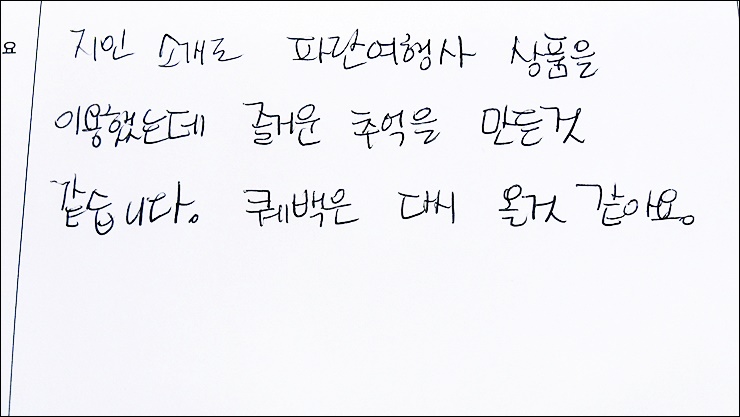 요
지인 소개로 파란여행사 상품을
이용했는데 즐거운 추억을 만든것
같습니다. 퀘백은 다시 올것 같아요.